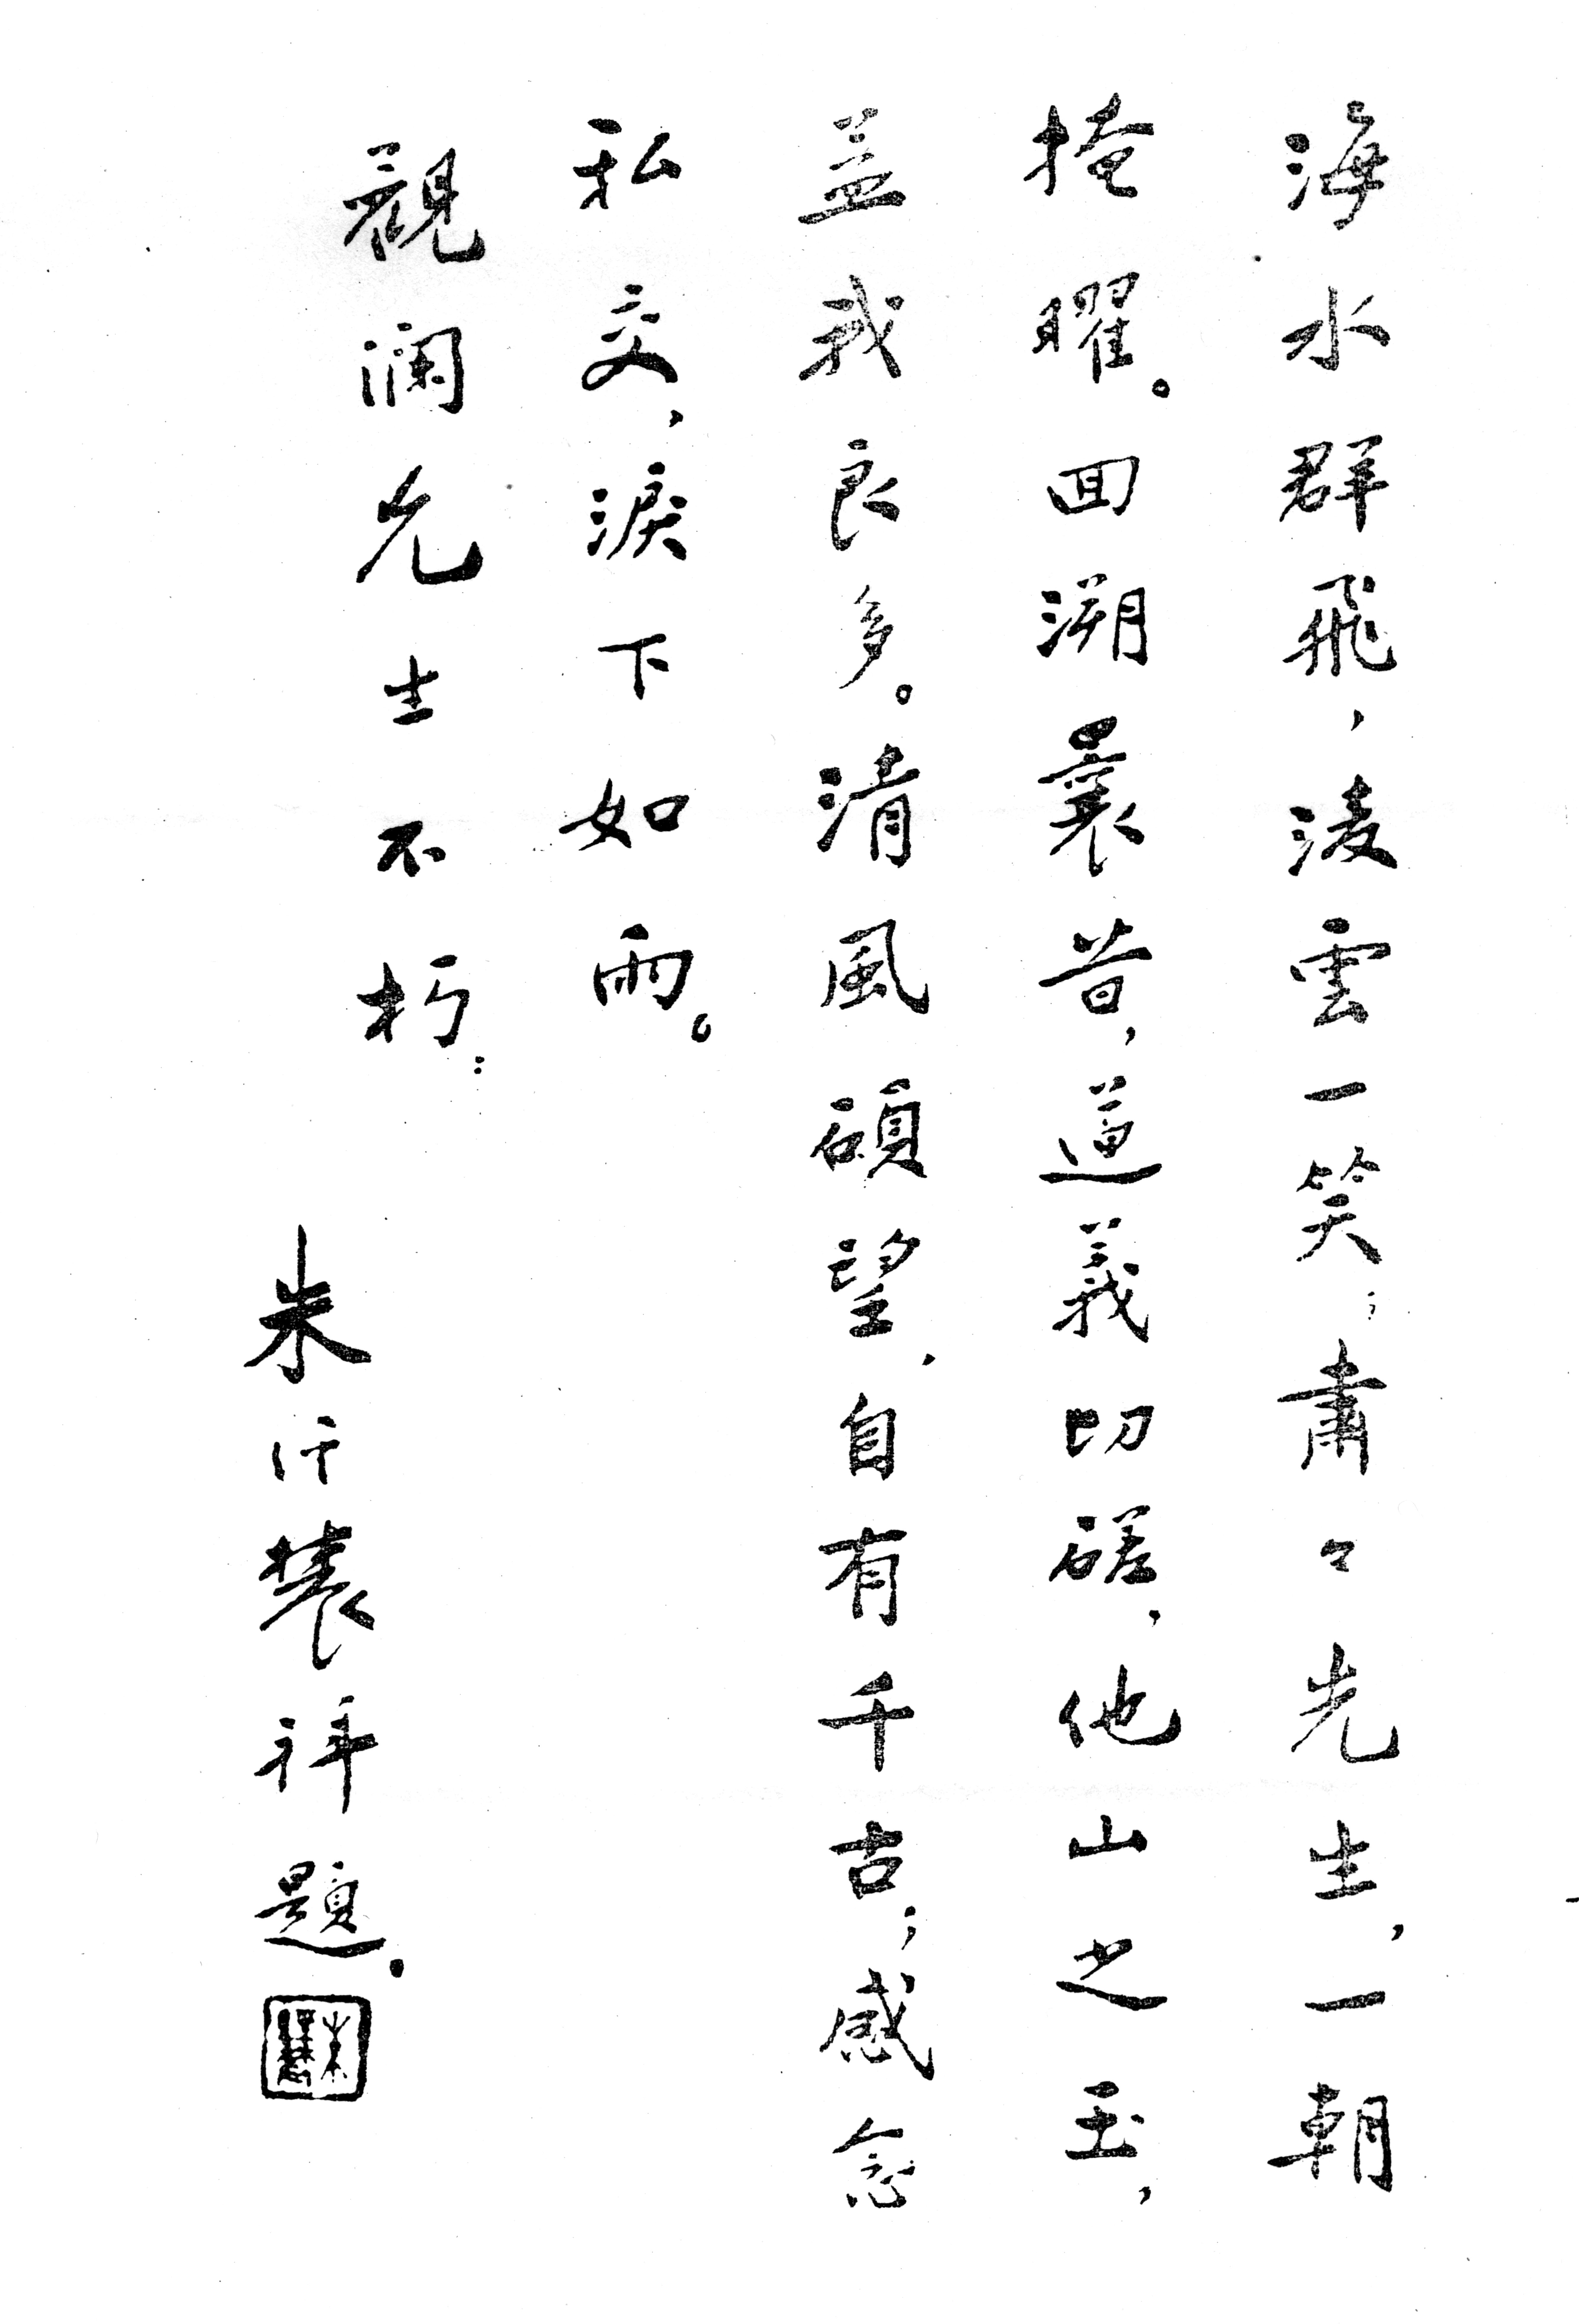 海水群飛，淩雲一笑；肅々先生，一朝
掩曜。回溯曩昔，道義切磋，他山之玉，
益我良多。清風碩望，自有千古；感念
私交，淚下如雨。
觀瀾先生不朽：
朱 裳 拜題。